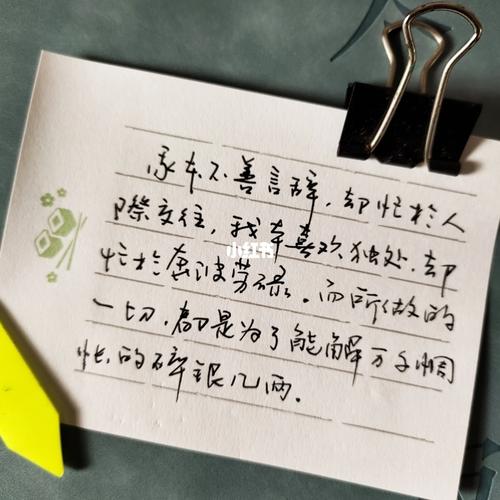 我本不善言辞，却忙於人
际交往，我本喜欢独处，却
忙於奔波劳碌。而所做的
一切，都是为了能解万千惆
怅的碎银几两。
小红书